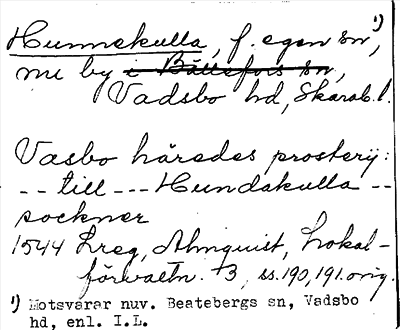 Hunnekulla, f. egen sn¹⁾,
nu by i Bällefors sn,
Vadsbo hd, Skarab. l.
Vasbo häredes prosterij:
-- till --- Hundakulla --
sockner
1544 Lreg, Almquist, Lokal-
förvaltn. +3, ss. 190, 191. orig.
¹⁾ Motsvarar nuv. Beatebergs sn, Vadsbo
hd, enl. I.L.